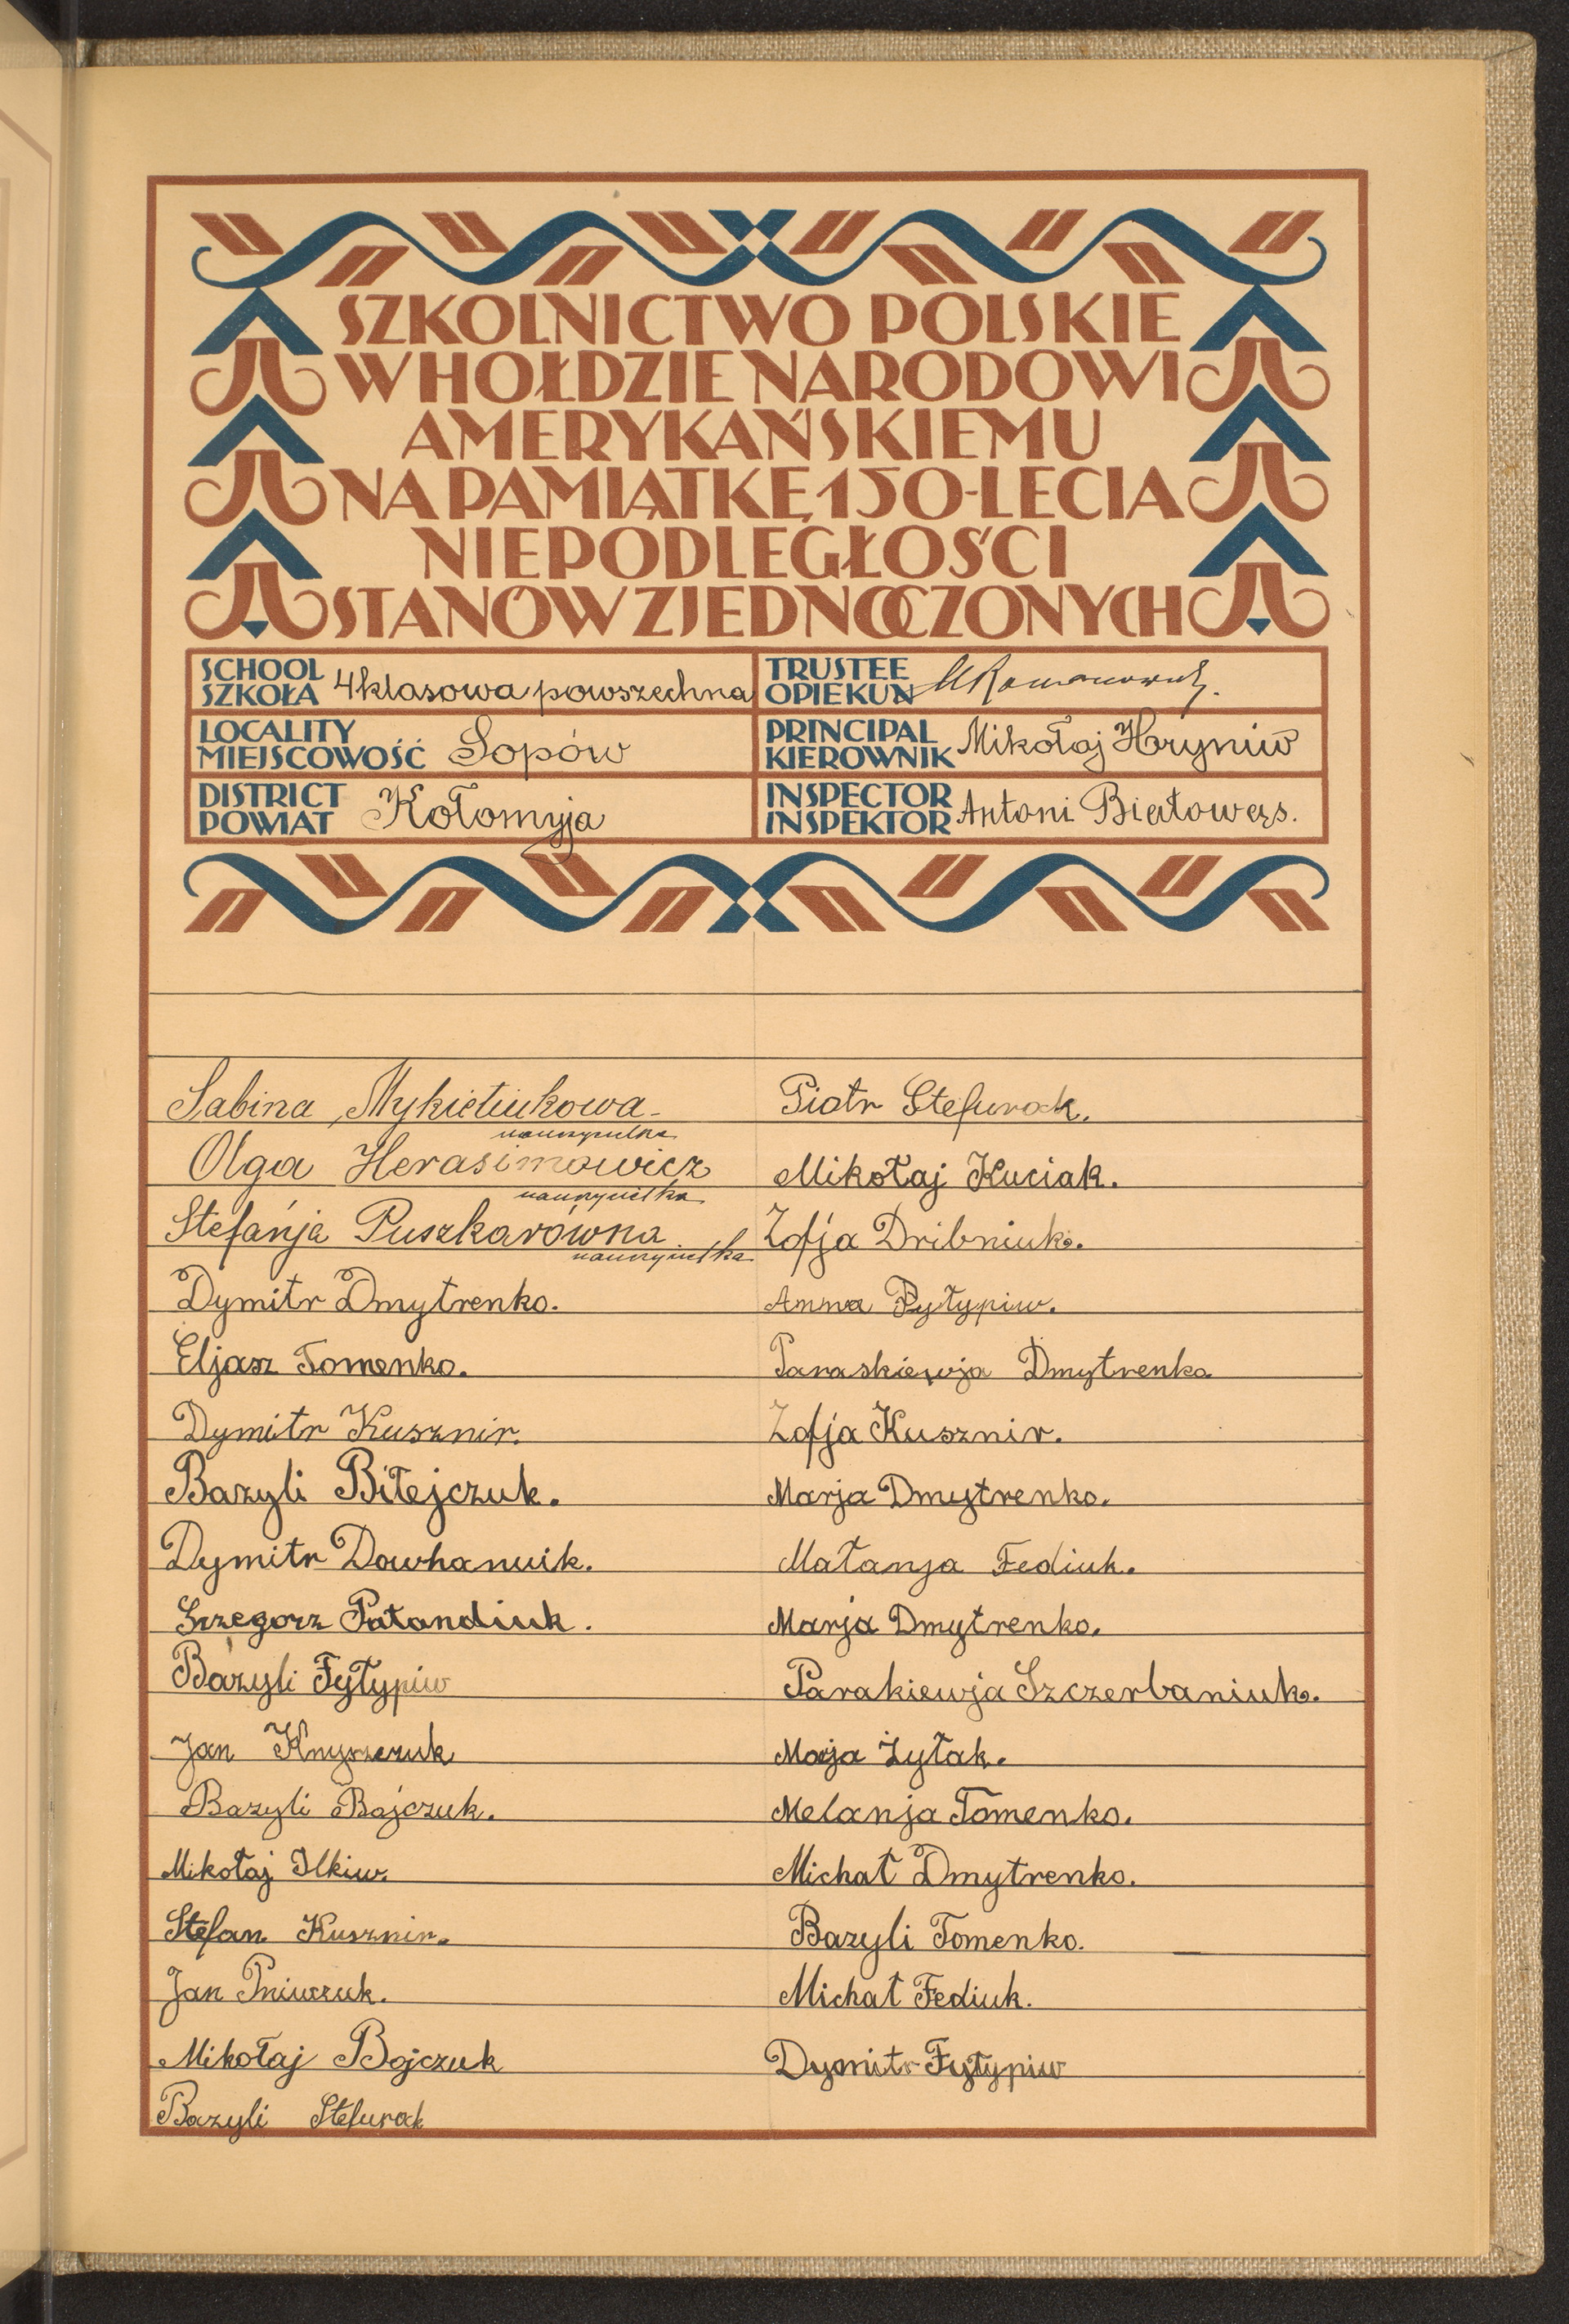 SZKOLNICTWO POLSKIE
W HOŁDZIE NARODOWI
AMERYKAŃSKIEMU
NA PAMIĄTKĘ 150-LECIA
NIEPODLEGŁOŚCI
STANÓW ZJEDNOCZONYCH
SCHOOL
SZKOŁA 4 klasowa powszechna
TRUSTEE
OPIEKUN
LOCALITY
MIEJSCOWOŚĆ Sopów
PRINCIPAL
KIEROWNIK Mikołaj Hryniw
DISTRICT
POWIAT Kołomyja
INSPECTOR
INSPEKTOR Antoni Białowąs.
Sabina Mykietiukowa
nauczycielka
Olga Herasimowicz
nauczycielka
Stefanja Puszkarówna
nauczycielka
Dymitr Dmytrenko.
Eljasz Tomenko.
Dymitr Kusznir.
Bazyli Biłejczuk.
Dymitr Dowhanuik.
Grzegorz Pałandiuk.
Bazyli Fyłypiw
Jan Knyszczuk
Bazyli Bojczuk.
Mikołaj Ilkiw.
Stefan Kusznir.
Jan Pniwczuk.
Mikołaj Bojczuk
Bazyli Stefurak
Piotr Stefurak.
Mikołaj Kuciak.
Zofja Dribniuk.
Anna Fyłypiw.
Paraskiewja Dmytrenko
Zofja Kusznir.
Marja Dmytrenko.
Małanja Fediuk.
Marja Dmytrenko.
Parakiewja Szczerbaniuk.
Marja Żyłak.
Melanja Tomenko.
Michał Dmytrenko.
Bazyli Tomenko.
Michał Fediuk.
Dymitr Fyłypiw